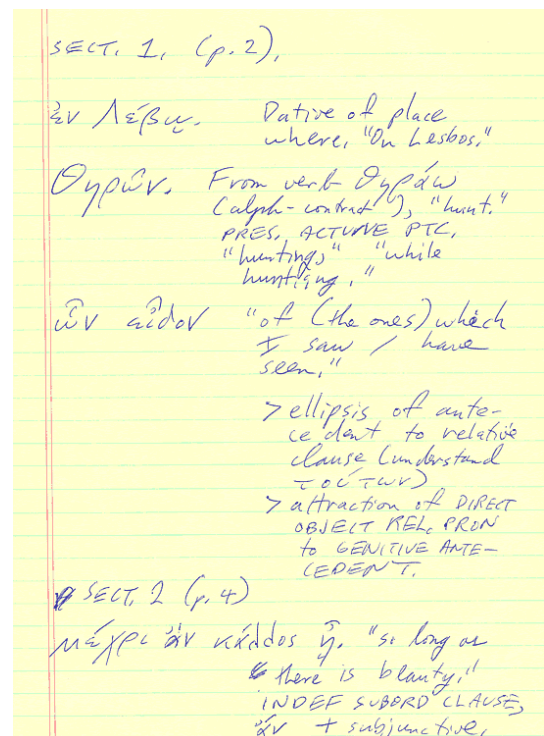 SECT. 1, (p. 2),
ἐν Λέβῳ. Dative of place
where, "On Lesbos."
Θηρῶν. From verb θηράω
(alph-contract), "hunt."
PRES, ACTUVE PTC,
"hunting," "while
hunting."
ὧν εἶδον "of (the ones) which
I saw / have
seen,"
> ellipsis of ante-
cedent to relative
clause (understand
τούτων)
> attraction of DIRECT
OBJECT REL, PRON
to GENITIVE ANTE-
CEDENT.
SECT, 2 (p, 4)
μέχρι ἂν κάλλος ᾖ. "so long as
there is beauty,"
INDEF SUBORD CLAUSE,
ἂν + subjunctive,